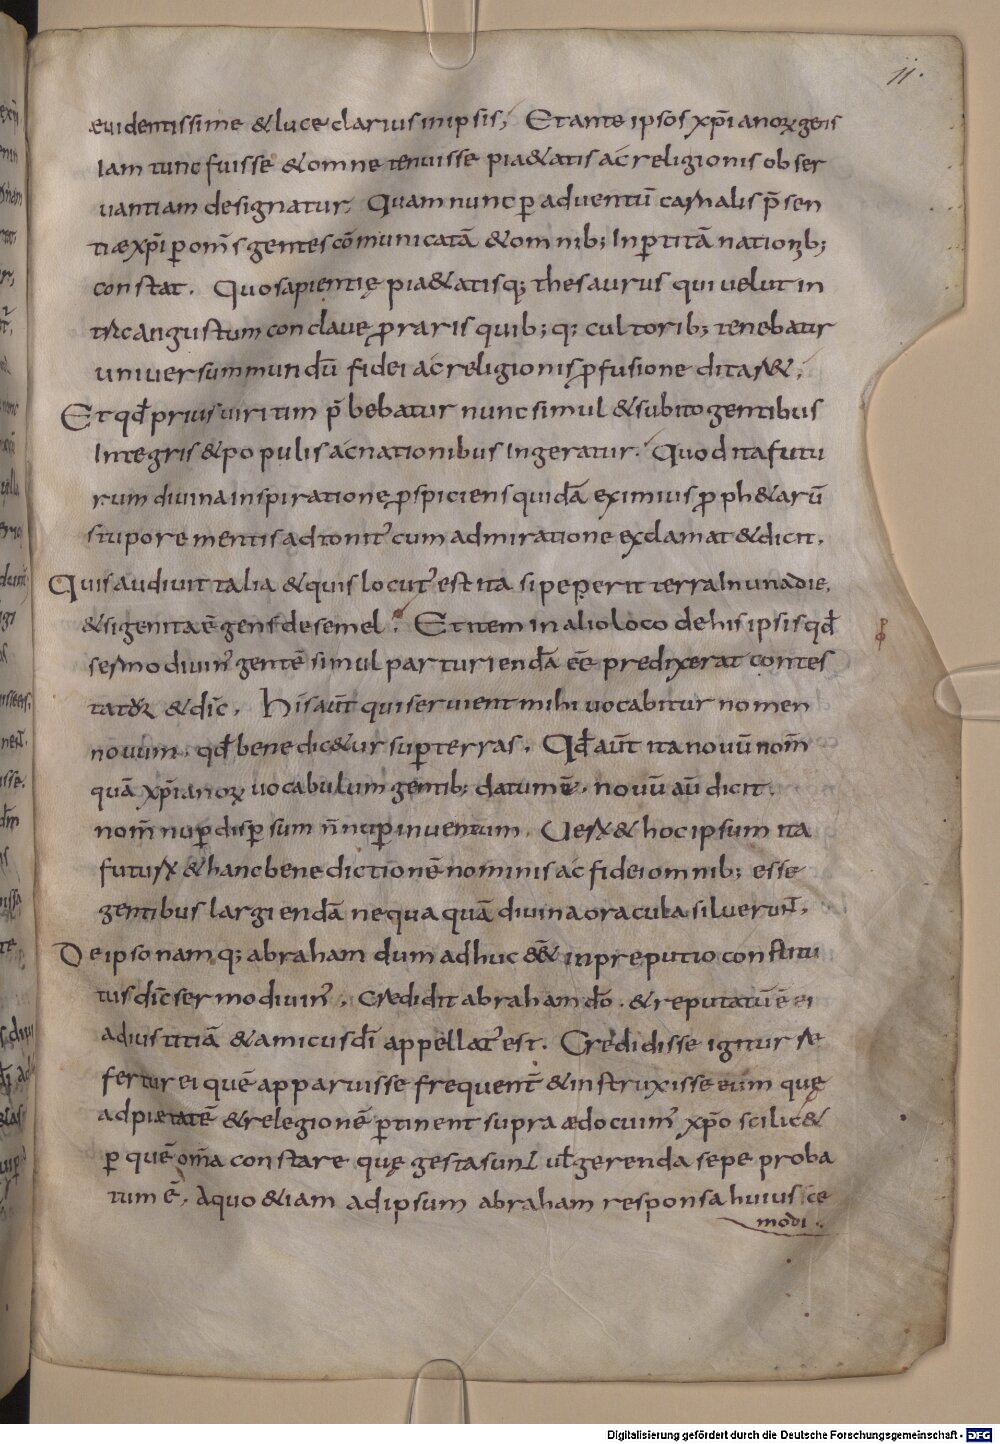 11.
æuidentissime & luce clarius in ipsis; Et ante ipsos xp̄ianoꝝ gens
Iam tunc fuisse & omne tenuisse pia&atis ac religionis obser
uantiam designatur; Quam nunc ꝑ aduentū carnalis p̄sen
tiæ xp̄i ꝑ om̄s gentes cōmunicatā & omnib; Inꝑtitā nationib;
constat. Quo sapientię pia&atisq; thesaurus qui uelut in
tr̄c angustum conclaue ꝓ raris quib; q; cultorib; tenebatur
uniuersum mundū fidei ac religionis ꝓfusione ditar&;
Et qđ prius uiritim p̄bebatur nunc simul & subito gentibus
Integris & populis ac nationibus Ingeratur. Quod ita futu
rum diuina inspiratione ꝓspiciens quidā eximius ꝓph&arū
stupore mentis adtonit' cum admiratione exclamat & dicit.
Quis audiuit talia & quis locut' est ita si peperit terra In una die,
& si genita ē gens de semel. Et item in alio loco de his ipsis qđ
sermo diuin' gentē simul parturiendā eē predixerat contes
tatur & dic̄. His aūt qui seruient mihi uocabitur nomen
nouum. qđ benedic&ur suꝑ terras. Qđ aūt ita nouū nom̄
quā xp̄ianoꝝ uocabulum gentib; datum ē. nouū aū dicit.
nom̄ nuꝑ disꝑsum n̄ nuꝑ inuentum. Uerū & hoc ipsum ita
futurū & hanc benedictionē nominis ac fidei omnib; esse
gentibus largiendā nequaquā diuina oracula siluerunt.
De ipso namq; abraham dum adhuc ēēt in preputio constitu
tus dic̄ sermo diuin'. Credidit abraham dō. & reputatū ē ei
ad iustitiā & amicus dī appellat' est. Credidisse igitur se
fertur ei quē apparuisse frequent̄ & instruxisse eum quę
ad pietatē & relegionē ꝑtinent supra ædocuim' xp̄o scilic&
ꝑ quē om̄a constare quę gesta sunt uł gerenda sepe proba
tum ē. A quo &iam ad ipsum abraham responsa huiusce
modi.
Digitalisierung gefördert durch die Deutsche Forschungsgemeinschaft - DFG